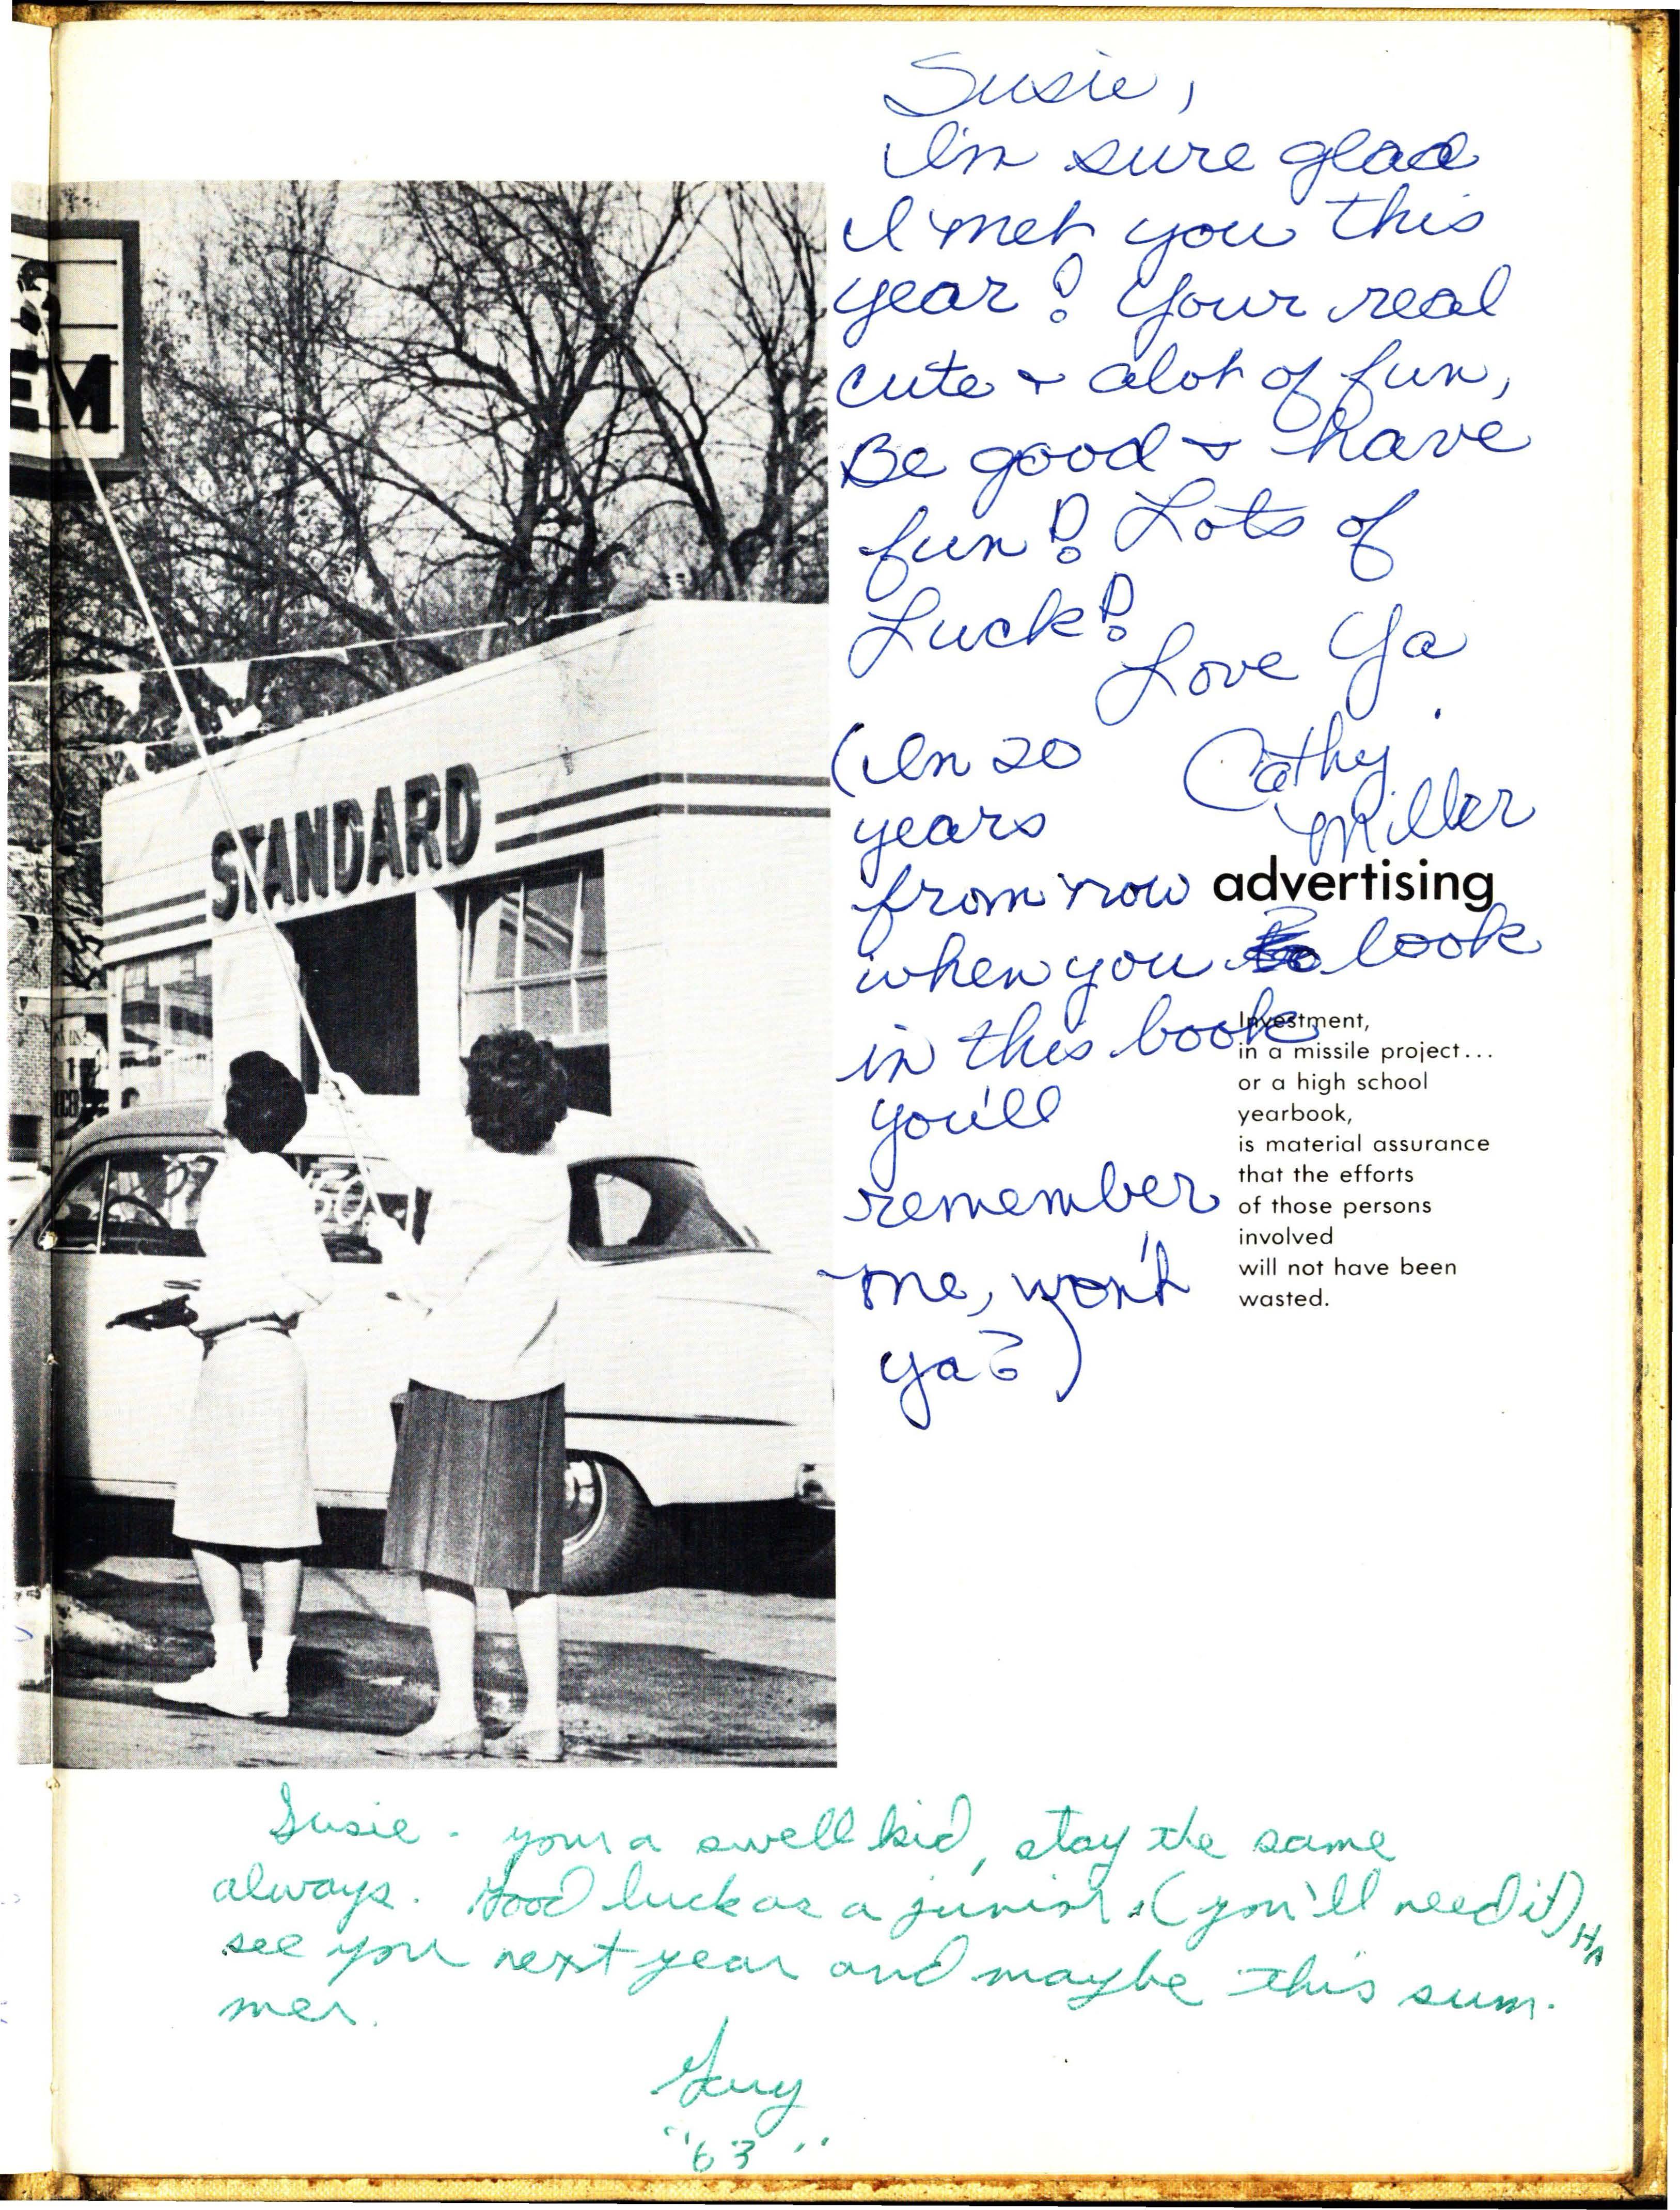 Susie,
I'm sure glad
I met you this
year! Your real
cute & alot of fun,
Be good & have
fun! Lots of
Luck!
Love Ya
Cathy
Miller
(In 20
years
from now
when you look
in this book
you'll
remember
me, won't
ya?)
advertising
Investment,
in a missile project...
or a high school
yearbook,
is material assurance
that the efforts
of those persons
involved
will not have been
wasted.
S
EM
STANDARD
Susie - your a swell kid, stay the same
always. Good luck as a junior. (you'll need it) HA
see you next year and maybe this sum-
mer.
Gary
"63"